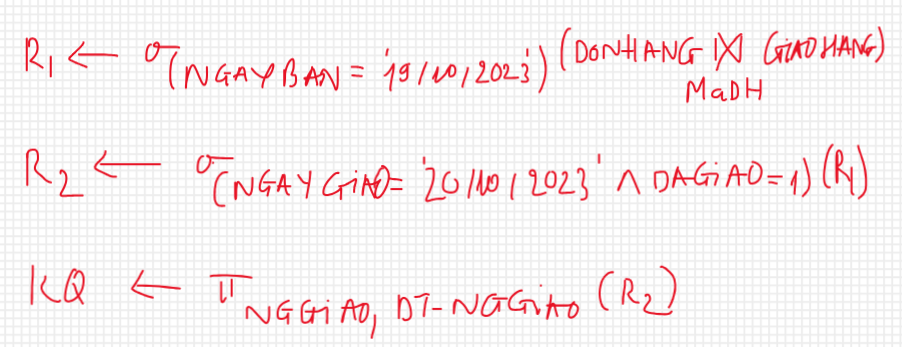 R1 ← σ(NGAYBAN = '19/10/2023') (DONHANG ⋈ GIAOHANG)
MaDH
R2 ← σ(NGAYGiAO = '20/10/2023' ∧ DAGiAO = 1) (R1)
KQ ← π NGGiAO, DT-NGGiAO (R2)